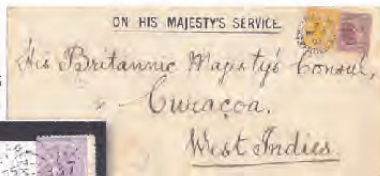 ON HIS MAJESTY'S SERVICE.
His Britannic Majesty's Consul,
Curaçoa.
West Indies.